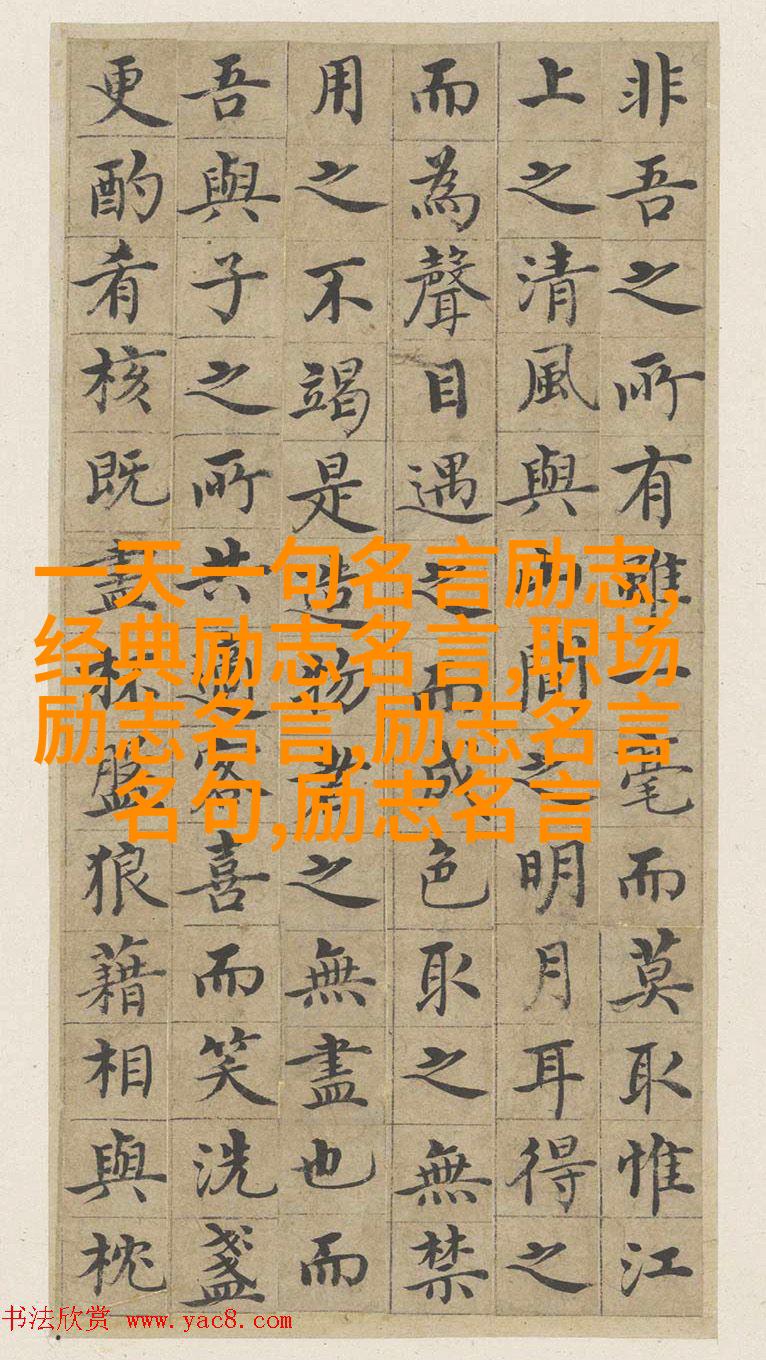 非吾之所有雖一毫而莫取惟江
上之清風與山間之明月耳得之
而為聲目遇之而成色取之無禁
用之不竭是造物者之無盡也而
吾與子之所共適客喜而笑洗盞
更酌肴核既盡杯盤狼藉相與枕
一天一句名言励志,
经典励志名言,职场
励志名言,励志名言
名句,励志名言
书法欣赏 www.yac8.com